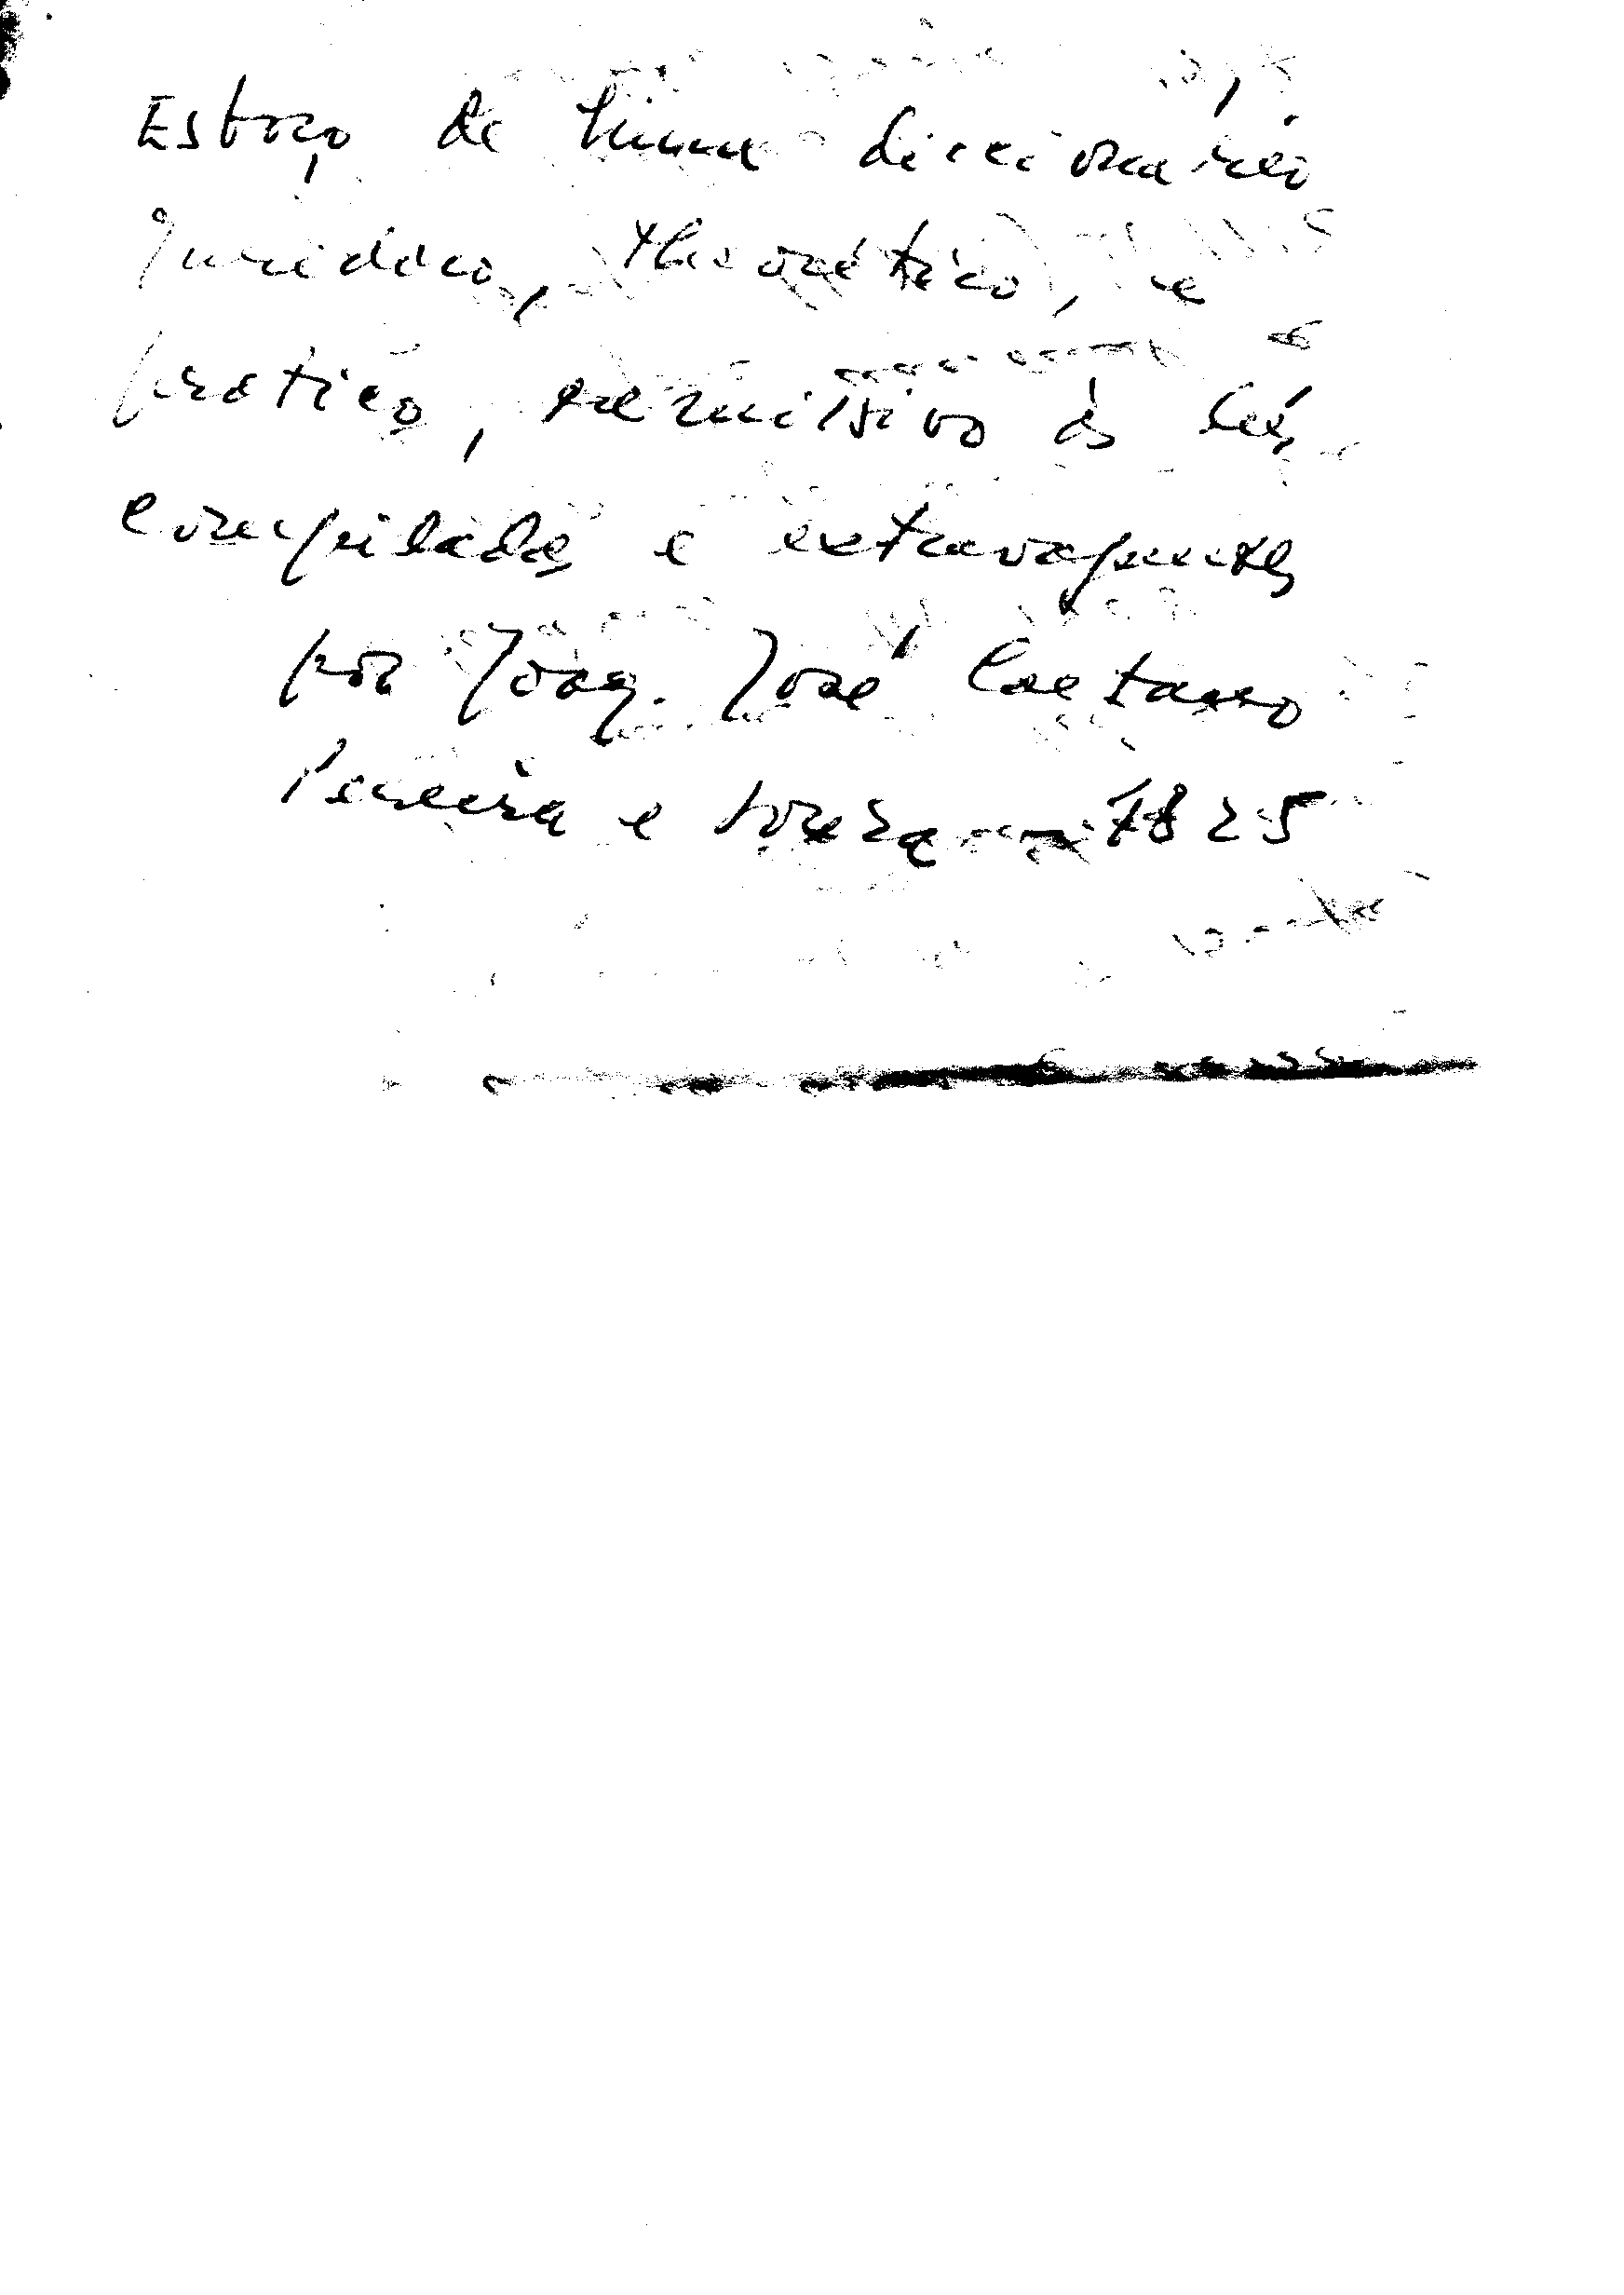 Esboço de hum diccionário
Jurídico, theorético, e
prático, remissivo ás leis
compiladas e extravagantes
por Joaq. José Caetano
Pereira e Souza — 1825